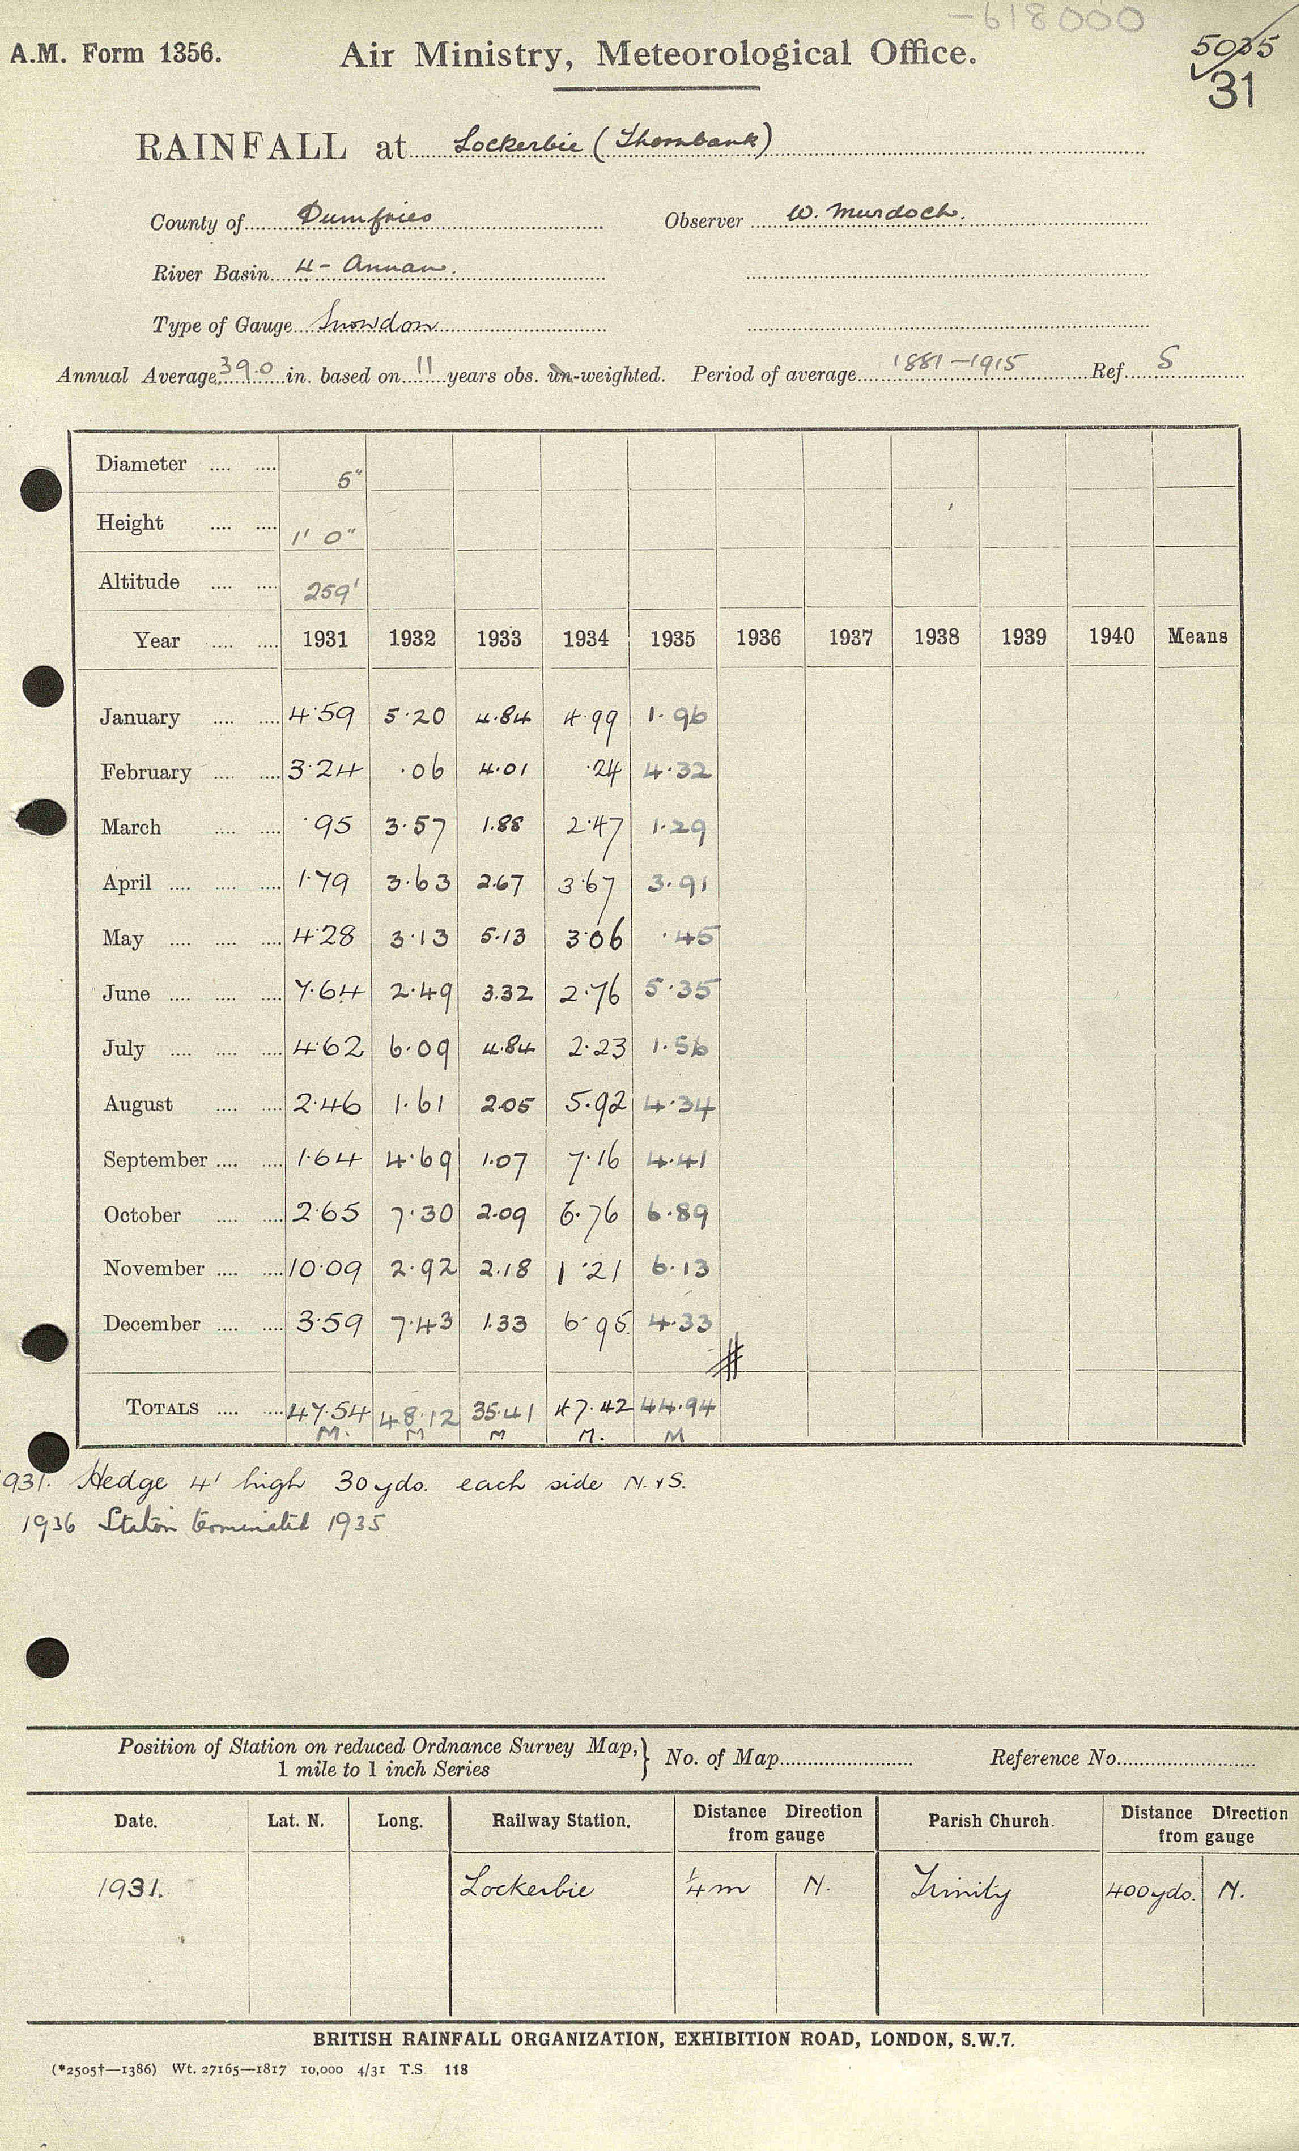 -618000
A.M. Form 1356. Air Ministry, Meteorological Office. 5035
31
RAINFALL at Lockerbie (Thornbank)
County of Dumfries Observer W. Murdoch.
River Basin 4 - Annan.
Type of Gauge Snowdon
Annual Average 39.0 in. based on 11 years obs. un-weighted. Period of average 1881-1915 Ref. S
Diameter .... .... 5"
Height .... .... 1' 0"
Altitude .... .... 259'
Year .... .... 1931 1932 1933 1934 1935 1936 1937 1938 1939 1940 Means
January .... .... 4.59 5.20 4.84 4.99 1.96
February .... .... 3.24 .06 4.01 .24 4.32
March .... .... .95 3.57 1.88 2.47 1.29
April .... .... .... 1.79 3.63 2.67 3.67 3.91
May .... .... .... 4.28 3.13 5.13 3.06 .45
June .... .... .... 7.64 2.49 3.32 2.76 5.35
July .... .... .... 4.62 6.09 4.84 2.23 1.56
August .... .... 2.46 1.61 2.05 5.92 4.34
September .... .... 1.64 4.69 1.07 7.16 4.41
October .... .... 2.65 7.30 2.09 6.76 6.89
November .... .... 10.09 2.92 2.18 1.21 6.13
December .... .... 3.59 7.43 1.33 6.95 4.33
#
TOTALS .... .... 47.54 48.12 35.41 47.42 44.94
M. M M M. M
1931. Hedge 4' high 30 yds. each side N. & S.
1936 Station terminated 1935
Position of Station on reduced Ordnance Survey Map, } No. of Map Reference No.
1 mile to 1 inch Series
Date. Lat. N. Long. Railway Station. Distance Direction Parish Church. Distance Direction
from gauge from gauge
1931. Lockerbie 1/4 m N. Trinity 400 yds. N.
BRITISH RAINFALL ORGANIZATION, EXHIBITION ROAD, LONDON, S.W.7.
(*2505†—1386) Wt. 27165—1817 10,000 4/31 T.S. 118